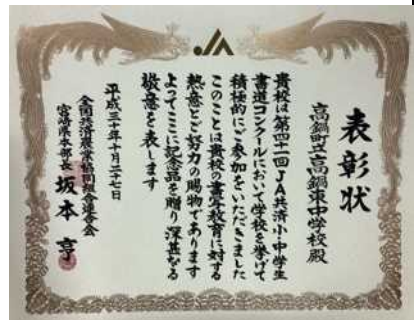 表彰状
高鍋町立高鍋東中学校殿
貴校は第四十一回JA共済小中学生
書道コンクールにおいて学校を挙げて
積極的にご参加をいただきました
このことは貴校の書写教育に対する
熱意とご努力の賜物であります
よってここに記念品を贈り深甚なる
敬意を表します
平成三十年十月二十七日
全国共済農業協同組合連合会
宮崎県本部長 坂本 亨